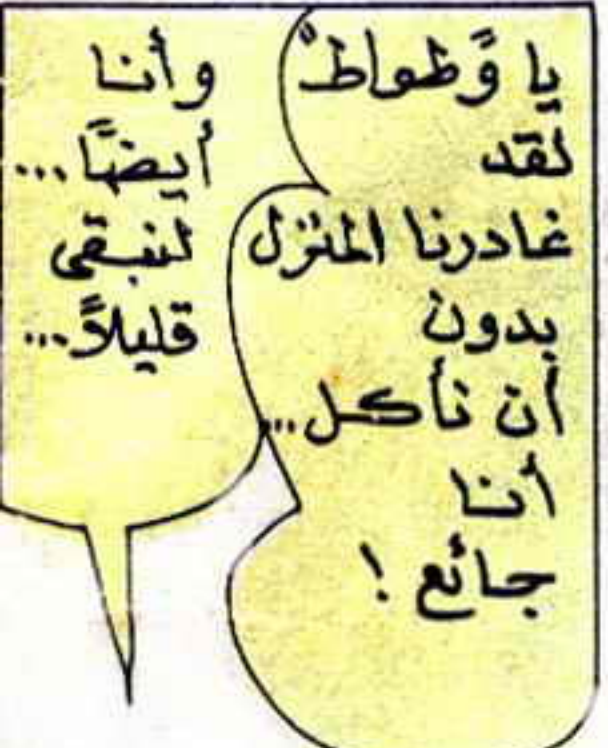 يا وَطواطْ
لقد
غادرنا المنزل
بدون
أن نأكل...
أنا
جائع !
وأنا
أيضًا...
لنبقى
قليلاً...